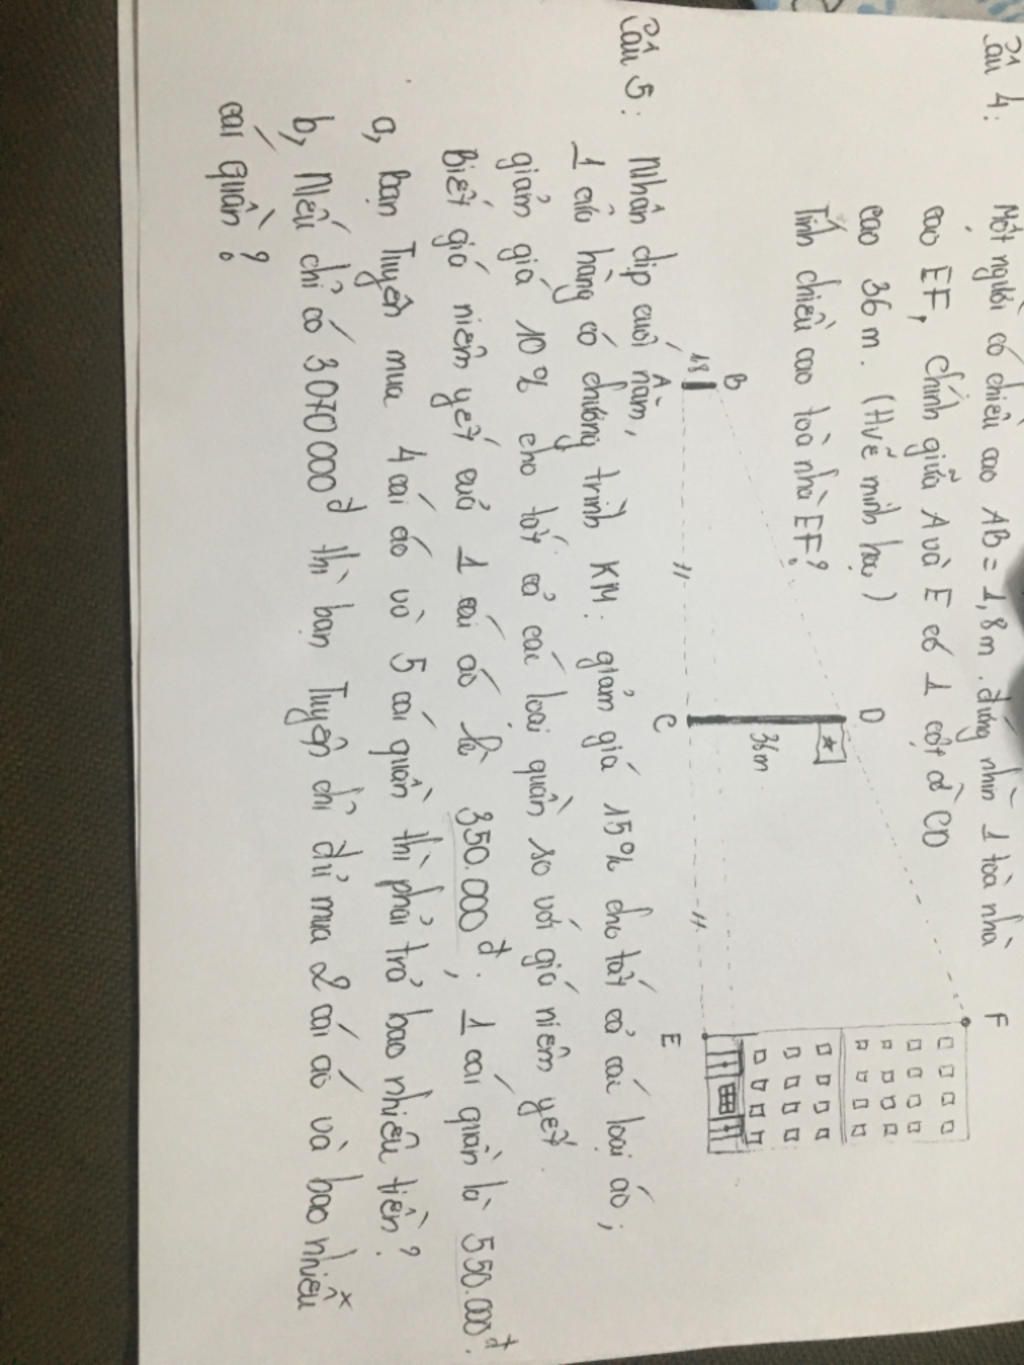 Câu 4: Một người có chiều cao AB = 1,8m. đứng nhìn 1 toà nhà
cao EF, chính giữa A và E có 1 cột cờ CD
cao 36m. (Hvẽ minh hoạ)
Tính chiều cao toà nhà EF?
B
D
F
1,8
36m
A
C
E
Câu 5: Nhân dịp cuối năm,
1 cửa hàng có chương trình KM: giảm giá 15% cho tất cả các loại áo;
giảm giá 10% cho tất cả các loại quần so với giá niêm yết.
Biết giá niêm yết của 1 cái áo là 350.000đ; 1 cái quần là 550.000đ.
a, Bạn Tuyên mua 4 cái áo và 5 cái quần thì phải trả bao nhiêu tiền?
b, Nếu chỉ có 3070000đ thì bạn Tuyên chỉ đủ mua 2 cái áo và bao nhiêu
cái quần?